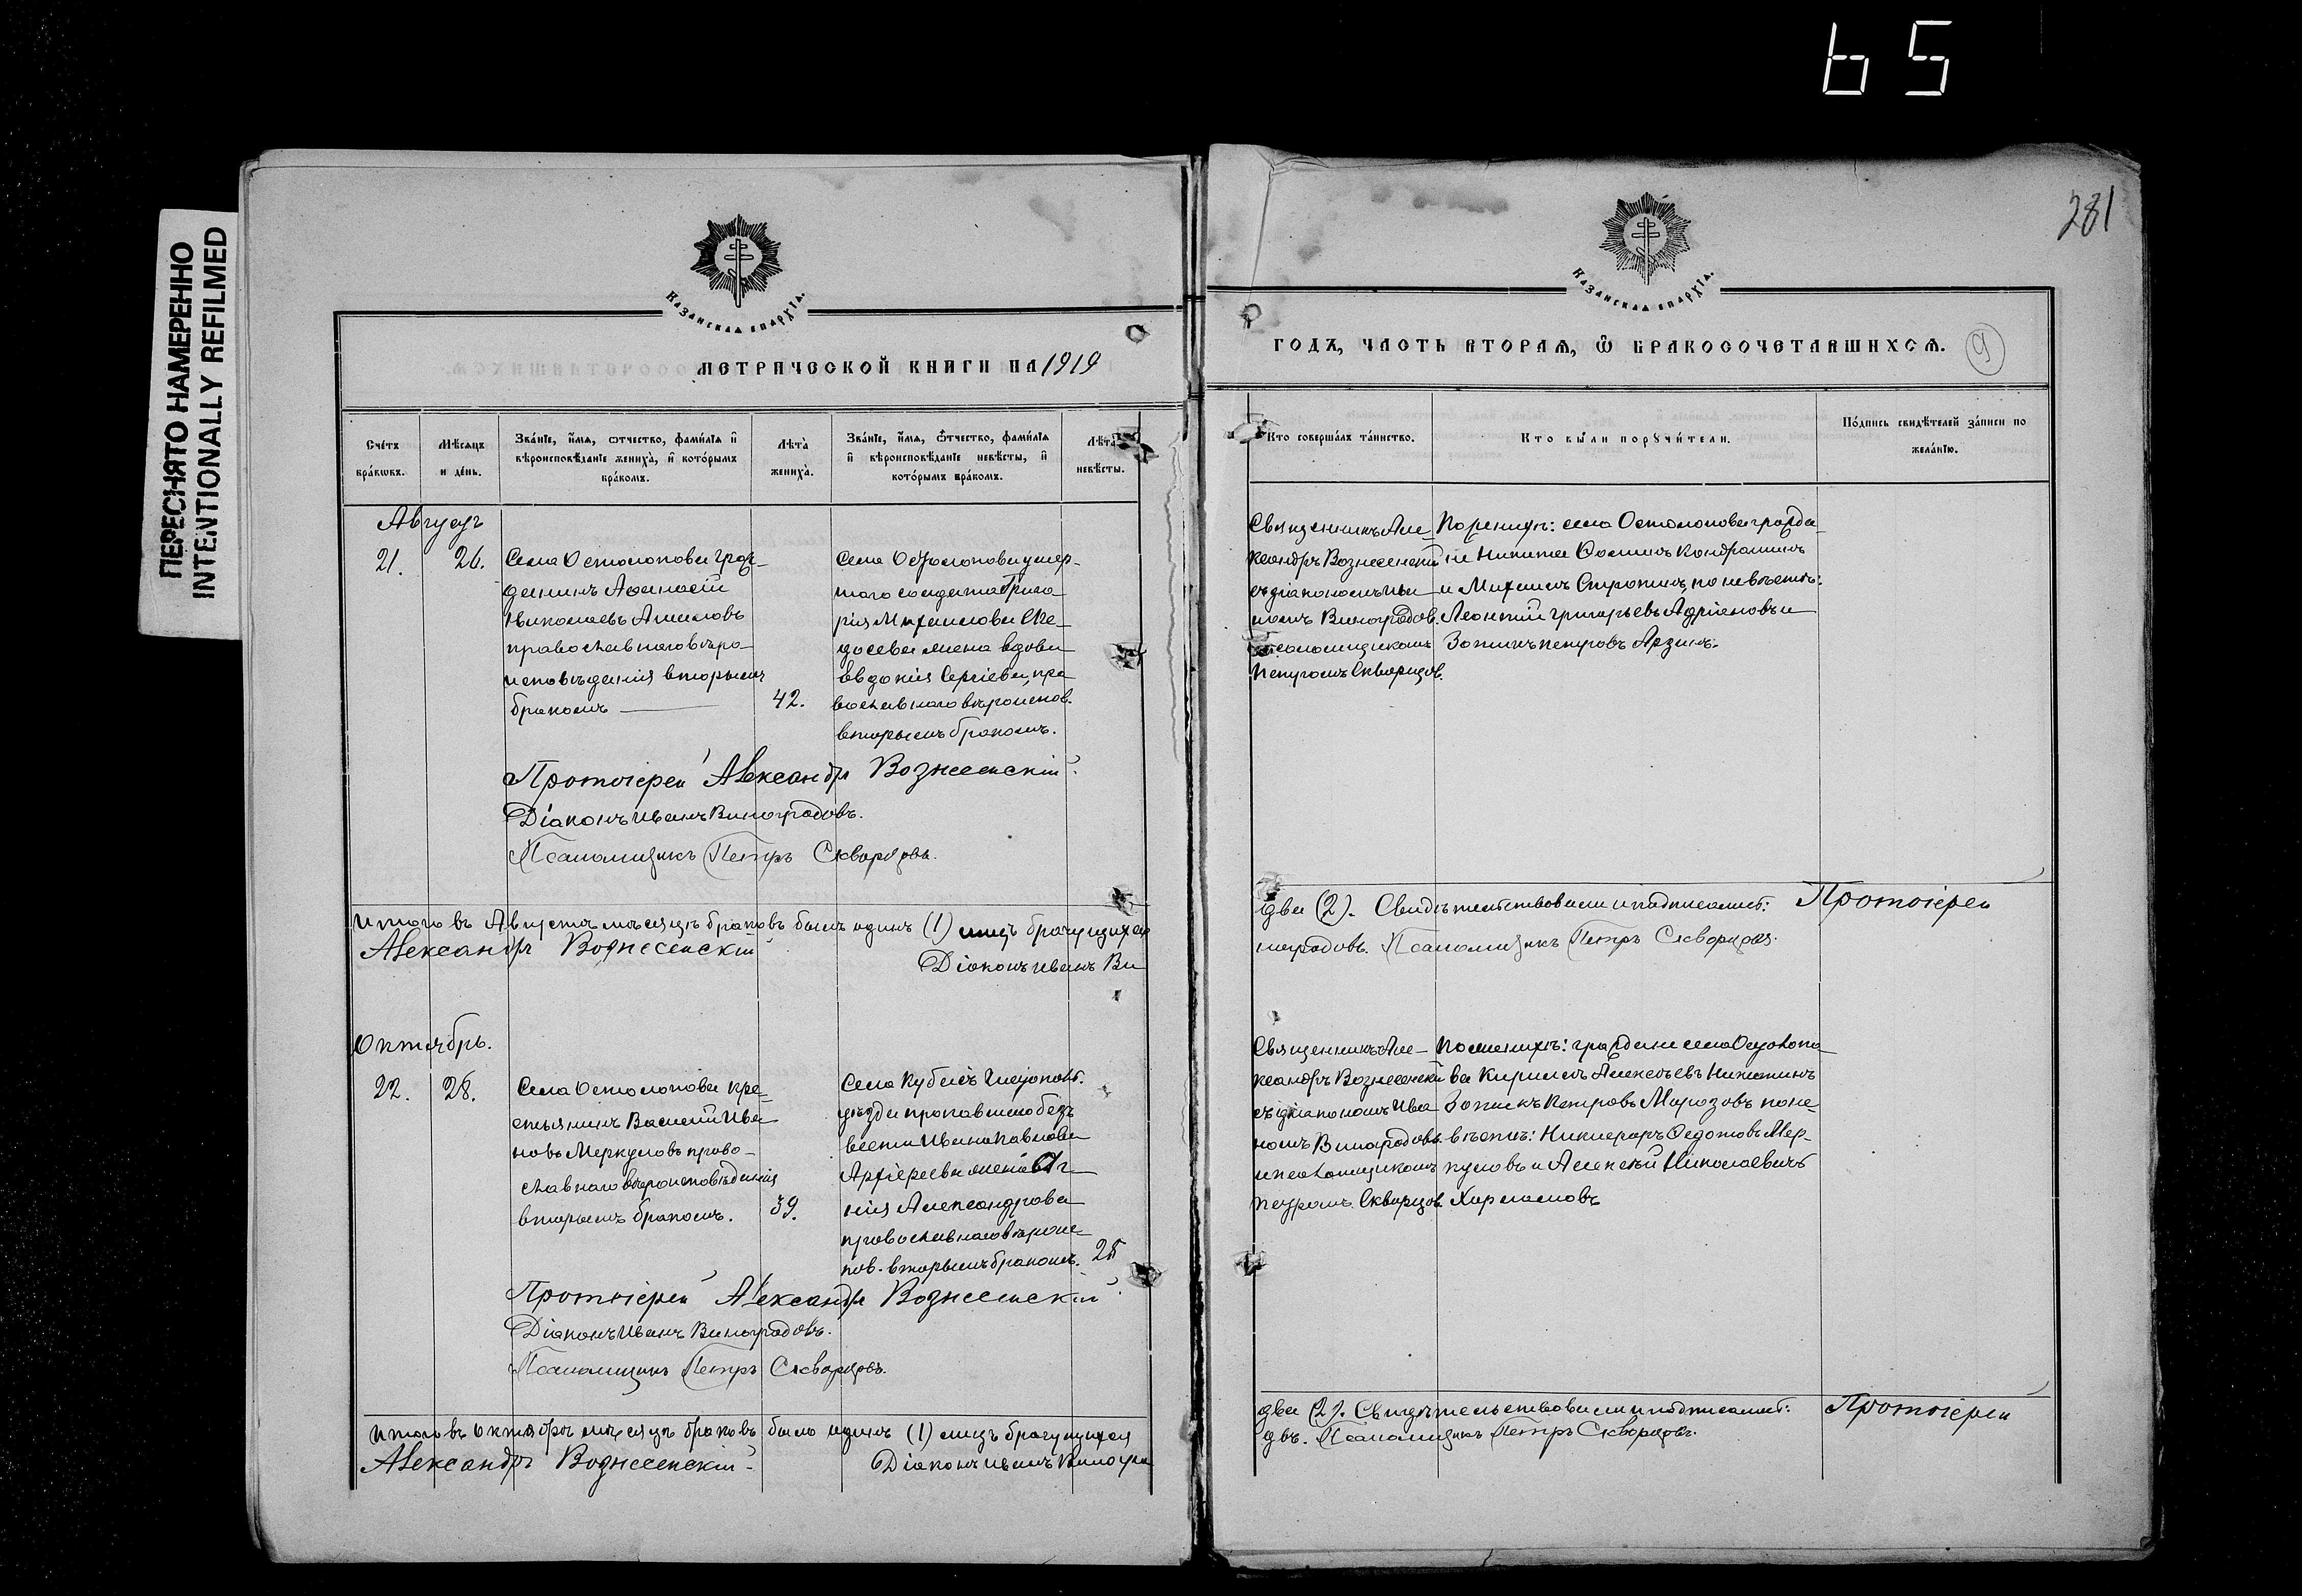 65
ПЕРЕСНЯТО НАМЕРЕННО
INTENTIONALLY REFILMED
281
Казанская епархія.
МЕТРИЧЕСКОЙ КНИГИ НА 1919
Счетъ браковъ.
Мѣсяцъ и день.
Званіе, имя, отчество, фамилія и вѣроисповѣданіе жениха, и которымъ бракомъ.
Лѣта жениха.
Званіе, имя, отчество, фамилія и вѣроисповѣданіе невѣсты, и которымъ бракомъ.
Лѣта невѣсты.
Августъ
21.
26.
Села Остолопова граж-
данинъ Аѳанасій
Николаевъ
православнаго вѣро-
исповѣданія вторымъ
бракомъ
42.
Села Остолопова умер-
шаго солдата Григо
рія Михаилова Ѳе-
досеева жена вдова
Евдокія Сергіева, пра
вославнаго вѣроиспов.
вторымъ бракомъ.
Протоіерей Александръ Вознесенскій
Діаконъ Иванъ Виноградовъ.
Псаломщикъ Петръ Скворцовъ.
Итого въ Августѣ мѣсяцѣ браковъ былъ одинъ (1) лицъ брачущихся
Александръ Вознесенскій
Діаконъ Иванъ Ви
Октябрь.
22.
28.
Села Остолопова кре-
стьянинъ Василій Ива
новъ Меркуловъ право-
славнаго вѣроисповѣданія
вторымъ бракомъ.
39.
Села Кубасъ Чистопол.
уѣзда пропавшаго безъ
вести Ивана Павлова
Архіереева жена
Александрова
православнаго вѣроис
пов. вторымъ бракомъ.
25
Протоіерей Александръ Вознесенскій
Діаконъ Иванъ Виноградовъ.
Псаломщикъ Петръ Скворцовъ.
Итого въ октябрѣ мѣсяцѣ браковъ было одинъ (1) лицъ брачущихся
Александръ Вознесенскій
Діаконъ Иванъ Виногра
Казанская епархія.
ГОДЪ, ЧАСТЬ ВТОРАЯ, Ѿ БРАКОСОЧЕТАВШИХСЯ.
9
Кто совершалъ таинство.
Кто были поручители.
Подпись свидѣтелей записи по желанію.
Священникъ Але
ксандръ Вознесенскій
съ діакономъ Ива
номъ Виноградов.
псаломщикомъ
Петромъ Скворцов.
По женихѣ: села Остолопова гражда
не Никита Ѳоминъ Кондрашинъ
и Михаилъ Сиротинъ, по невѣстѣ:
Леонтій Григорьевъ Адріановъ и
Зотикъ Петровъ
два (2). Свидѣтельствовали и подписали: Протоіерей
ноградовъ. Псаломщикъ Петръ Скворцовъ.
Священникъ Але-
ксандръ Вознесенскій
съ діакономъ Ива
номъ Виноградовъ
и псаломщикомъ
Петромъ Скворцов.
По женихѣ: граждане села Остолопо
ва Кирилъ Алексѣевъ Никитинъ
Зотикъ Петровъ Морозовъ по не-
вѣстѣ: Никифоръ Ѳедотовъ Мер-
куловъ и Алексѣй Николаевичъ
Харламовъ
два (2). Свидѣтельствовали и подписали: Протоіерей
довъ. Псаломщикъ Петръ Скворцовъ.